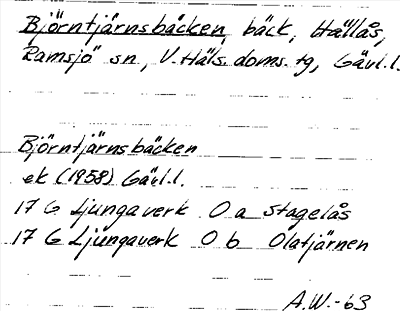 Björntjärnsbäcken, bäck, Hallås,
Ramsjö sn, V. Häls. doms. tg, Gävl. l.
Björntjärnsbäcken
ek (1958) Gävl. l.
17 G Ljungaverk 0 a Stagelås
17 G Ljungaverk 0 b Olatjärnen
A.W.-63